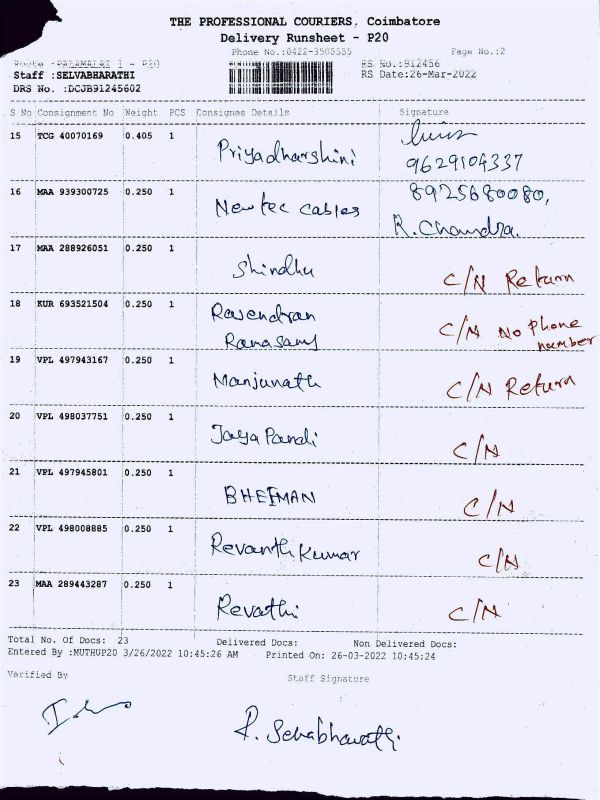 THE PROFESSIONAL COURIERS, Coimbatore
Delivery Runsheet - P20
Phone No.:0422-3505555 Page No.:2
Route :PALAMALAI 1 - P20 RS No.:912456
Staff :SELVABHARATHI RS Date:26-Mar-2022
DRS No. :DCJB91245602
S No Consignment No Weight PCS Consignee Details Signature
15 TCG 40070169 0.405 1 Priyadharshini
9629104337
16 MAA 939300725 0.250 1 Newtec cables 8925680080,
R. Chandra.
17 MAA 288926051 0.250 1 Shindhu C/N Return
18 KUR 693521504 0.250 1 Rasendran C/N No Phone
Ramasamy number
19 VPL 497943167 0.250 1 Manjunath C/N Return
20 VPL 498037751 0.250 1 Jaya Pandi C/N
21 VPL 497945801 0.250 1 BHEEMAN C/N
22 VPL 498008885 0.250 1 Revanth Kumar C/N
23 MAA 289443287 0.250 1 Revathi C/N
Total No. Of Docs: 23 Delivered Docs: Non Delivered Docs:
Entered By :MUTHUP20 3/26/2022 10:45:26 AM Printed On: 26-03-2022 10:45:24
Varified By Staff Signature
P. Selvabharathi